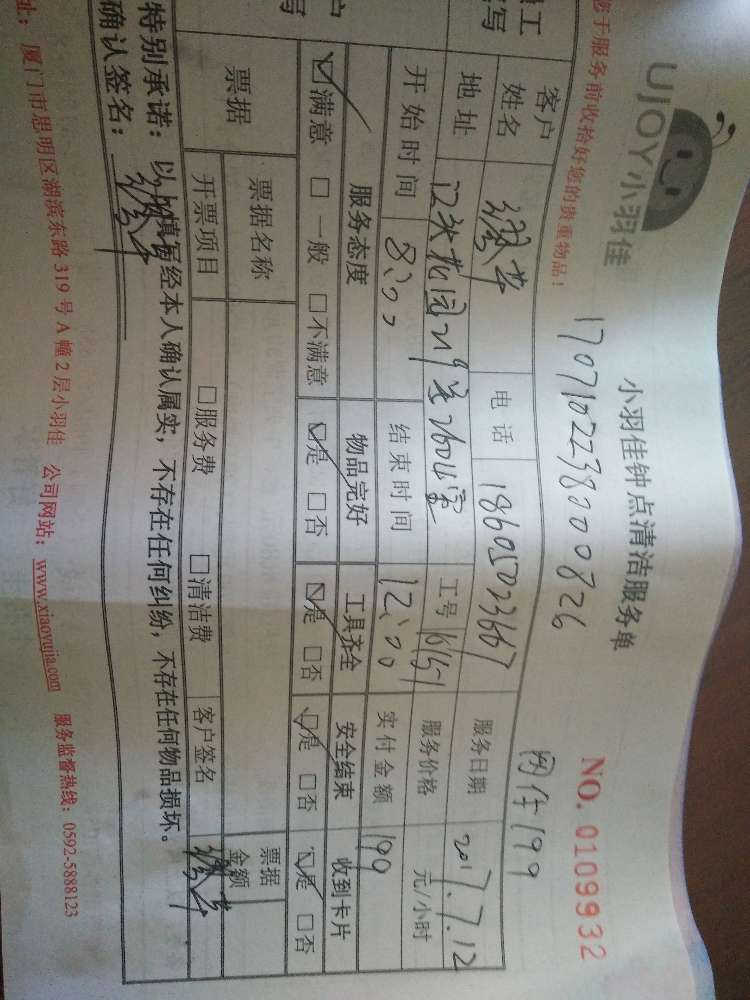 UJOY小羽佳
小羽佳钟点清洁服务单
NO. 0109932
于服务前收拾好您的贵重物品！
17071022380000826
网付199
客户
姓名
电话
18605023667
服务日期
2017.7.12
地址
花园219 2604室
工号
16151
服务价格
元/小时
开始时间
8:00
结束时间
12:00
实付金额
199
服务态度
物品完好
工具齐全
安全结束
收到卡片
☑满意 □一般 □不满意
☑是 □否
☑是 □否
☑是 □否
☑是 □否
票据
票据名称
票据
金额
开票项目
□服务费
□清洁费
客户签名
特别承诺：以上填写经本人确认属实，不存在任何纠纷，不存在任何物品损坏。
确认签名：
址：厦门市思明区湖滨东路319号A幢2层小羽佳 公司网站：www.xiaoyujia.com 服务监督热线：0592-5888123